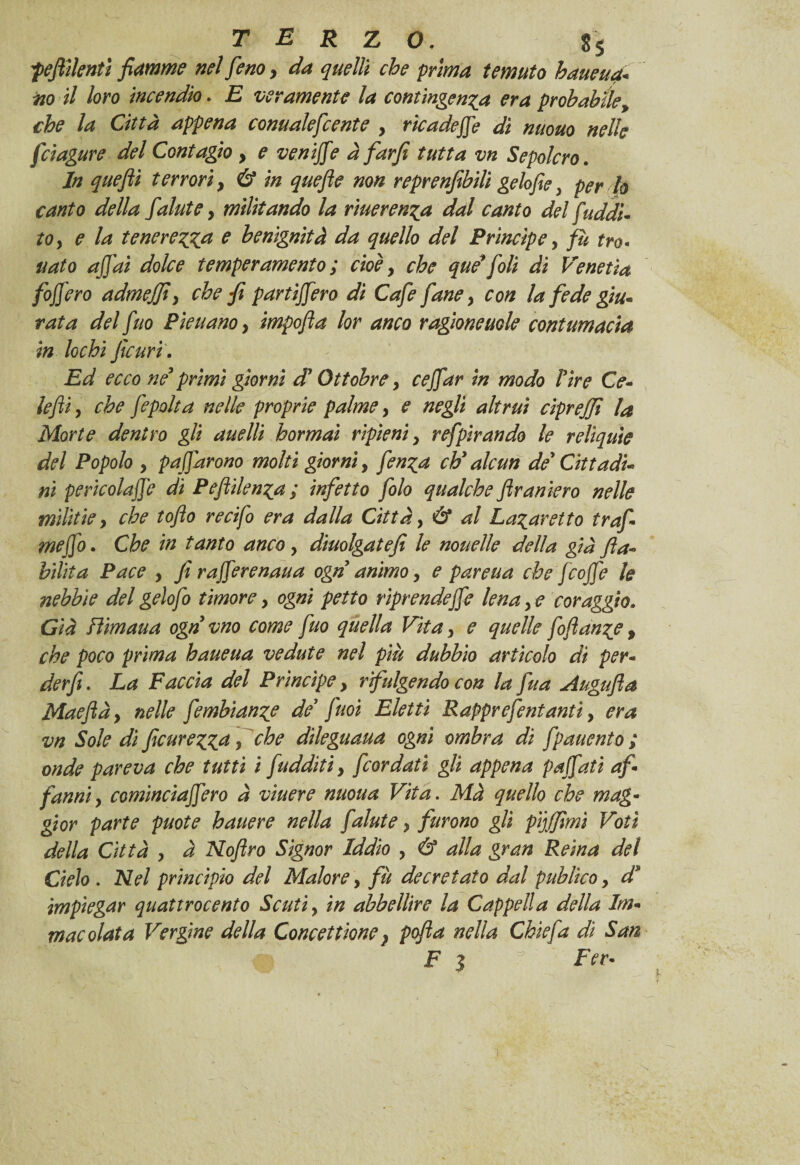 TERZO. 85
peſtilenti fiamme nel ſeno, da quelli che prima temuto haueua-
no il loro incendio. E veramente la contingenza era probabile,
che la Città appena conualeſcente, ricadeſſe di nuouo nelle
ſciagure del Contagio, e veniſſe à farſi tutta vn Sepolcro.
In queſti terrori, & in queſte non reprenſibili geloſie, per lo
canto della ſalute, militando la riuerenza dal canto del ſuddi-
to, e la tenerezza e benignità da quello del Principe, fù tro-
uato aſſai dolce temperamento; cioè, che que' ſoli di Venetia
foſſero admeſſi, che ſi partiſſero di Caſe ſane, con la fede giu-
rata del ſuo Pieuano, impoſta lor anco ragioneuole contumacia
in lochi ſicuri.
Ed ecco ne' primi giorni d' Ottobre, ceſſar in modo l'ire Ce-
leſti, che ſepolta nelle proprie palme, e negli altrui cipreſſi la
Morte dentro gli auelli hormai ripieni, reſpirando le reliquie
del Popolo, paſſarono molti giorni, ſenza ch' alcun de' Cittadi-
ni pericolaſſe di Peſtilenza; infetto ſolo qualche ſtraniero nelle
militie, che toſto reciſo era dalla Città, & al Lazaretto traſ-
meſſo. Che in tanto anco, diuolgateſi le nouelle della già ſta-
bilita Pace, ſi raſſerenaua ogn' animo, e pareua che ſcoſſe le
nebbie del geloſo timore, ogni petto riprendeſſe lena, e coraggio.
Già ſtimaua ogn' vno come ſuo quella Vita, e quelle ſoſtanze,
che poco prima haueua vedute nel più dubbio articolo di per-
derſi. La Faccia del Principe, rifulgendo con la ſua Auguſta
Maeſtà, nelle ſembianze de' ſuoi Eletti Rappreſentanti, era
vn Sole di ſicurezza, che dileguaua ogni ombra di ſpauento;
onde pareva che tutti i ſudditi, ſcordati gli appena paſſati af-
fanni, cominciaſſero à viuere nuoua Vita. Mà quello che mag-
gior parte puote hauere nella ſalute, furono gli pijſſimi Voti
della Città, à Noſtro Signor Iddio, & alla gran Reina del
Cielo. Nel principio del Malore, fù decretato dal publico, d'
impiegar quattrocento Scuti, in abbellire la Cappella della Im-
macolata Vergine della Concettione, poſta nella Chieſa di San
F 3 Fer-